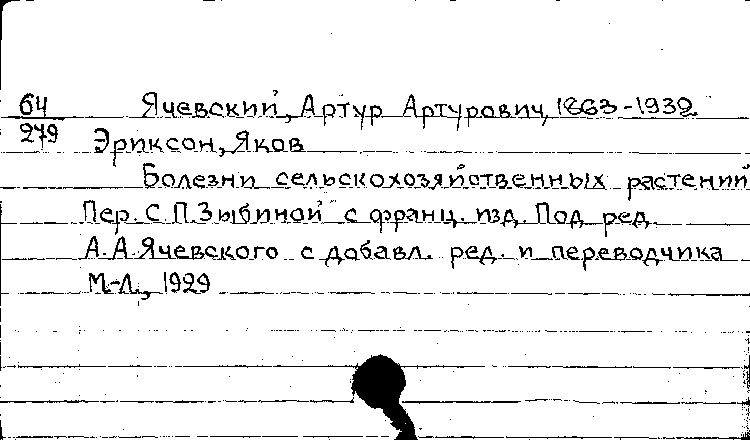 64 Ячевский, Артур Артурович, 1863-1932
279 Эриксон, Яков
Болезни сельскохозяйственных растений
Пер. С.П.Зыбиной с франц. изд. Под ред.
А.А.Ячевского с добавл. ред. и переводчика
М.-Л., 1929